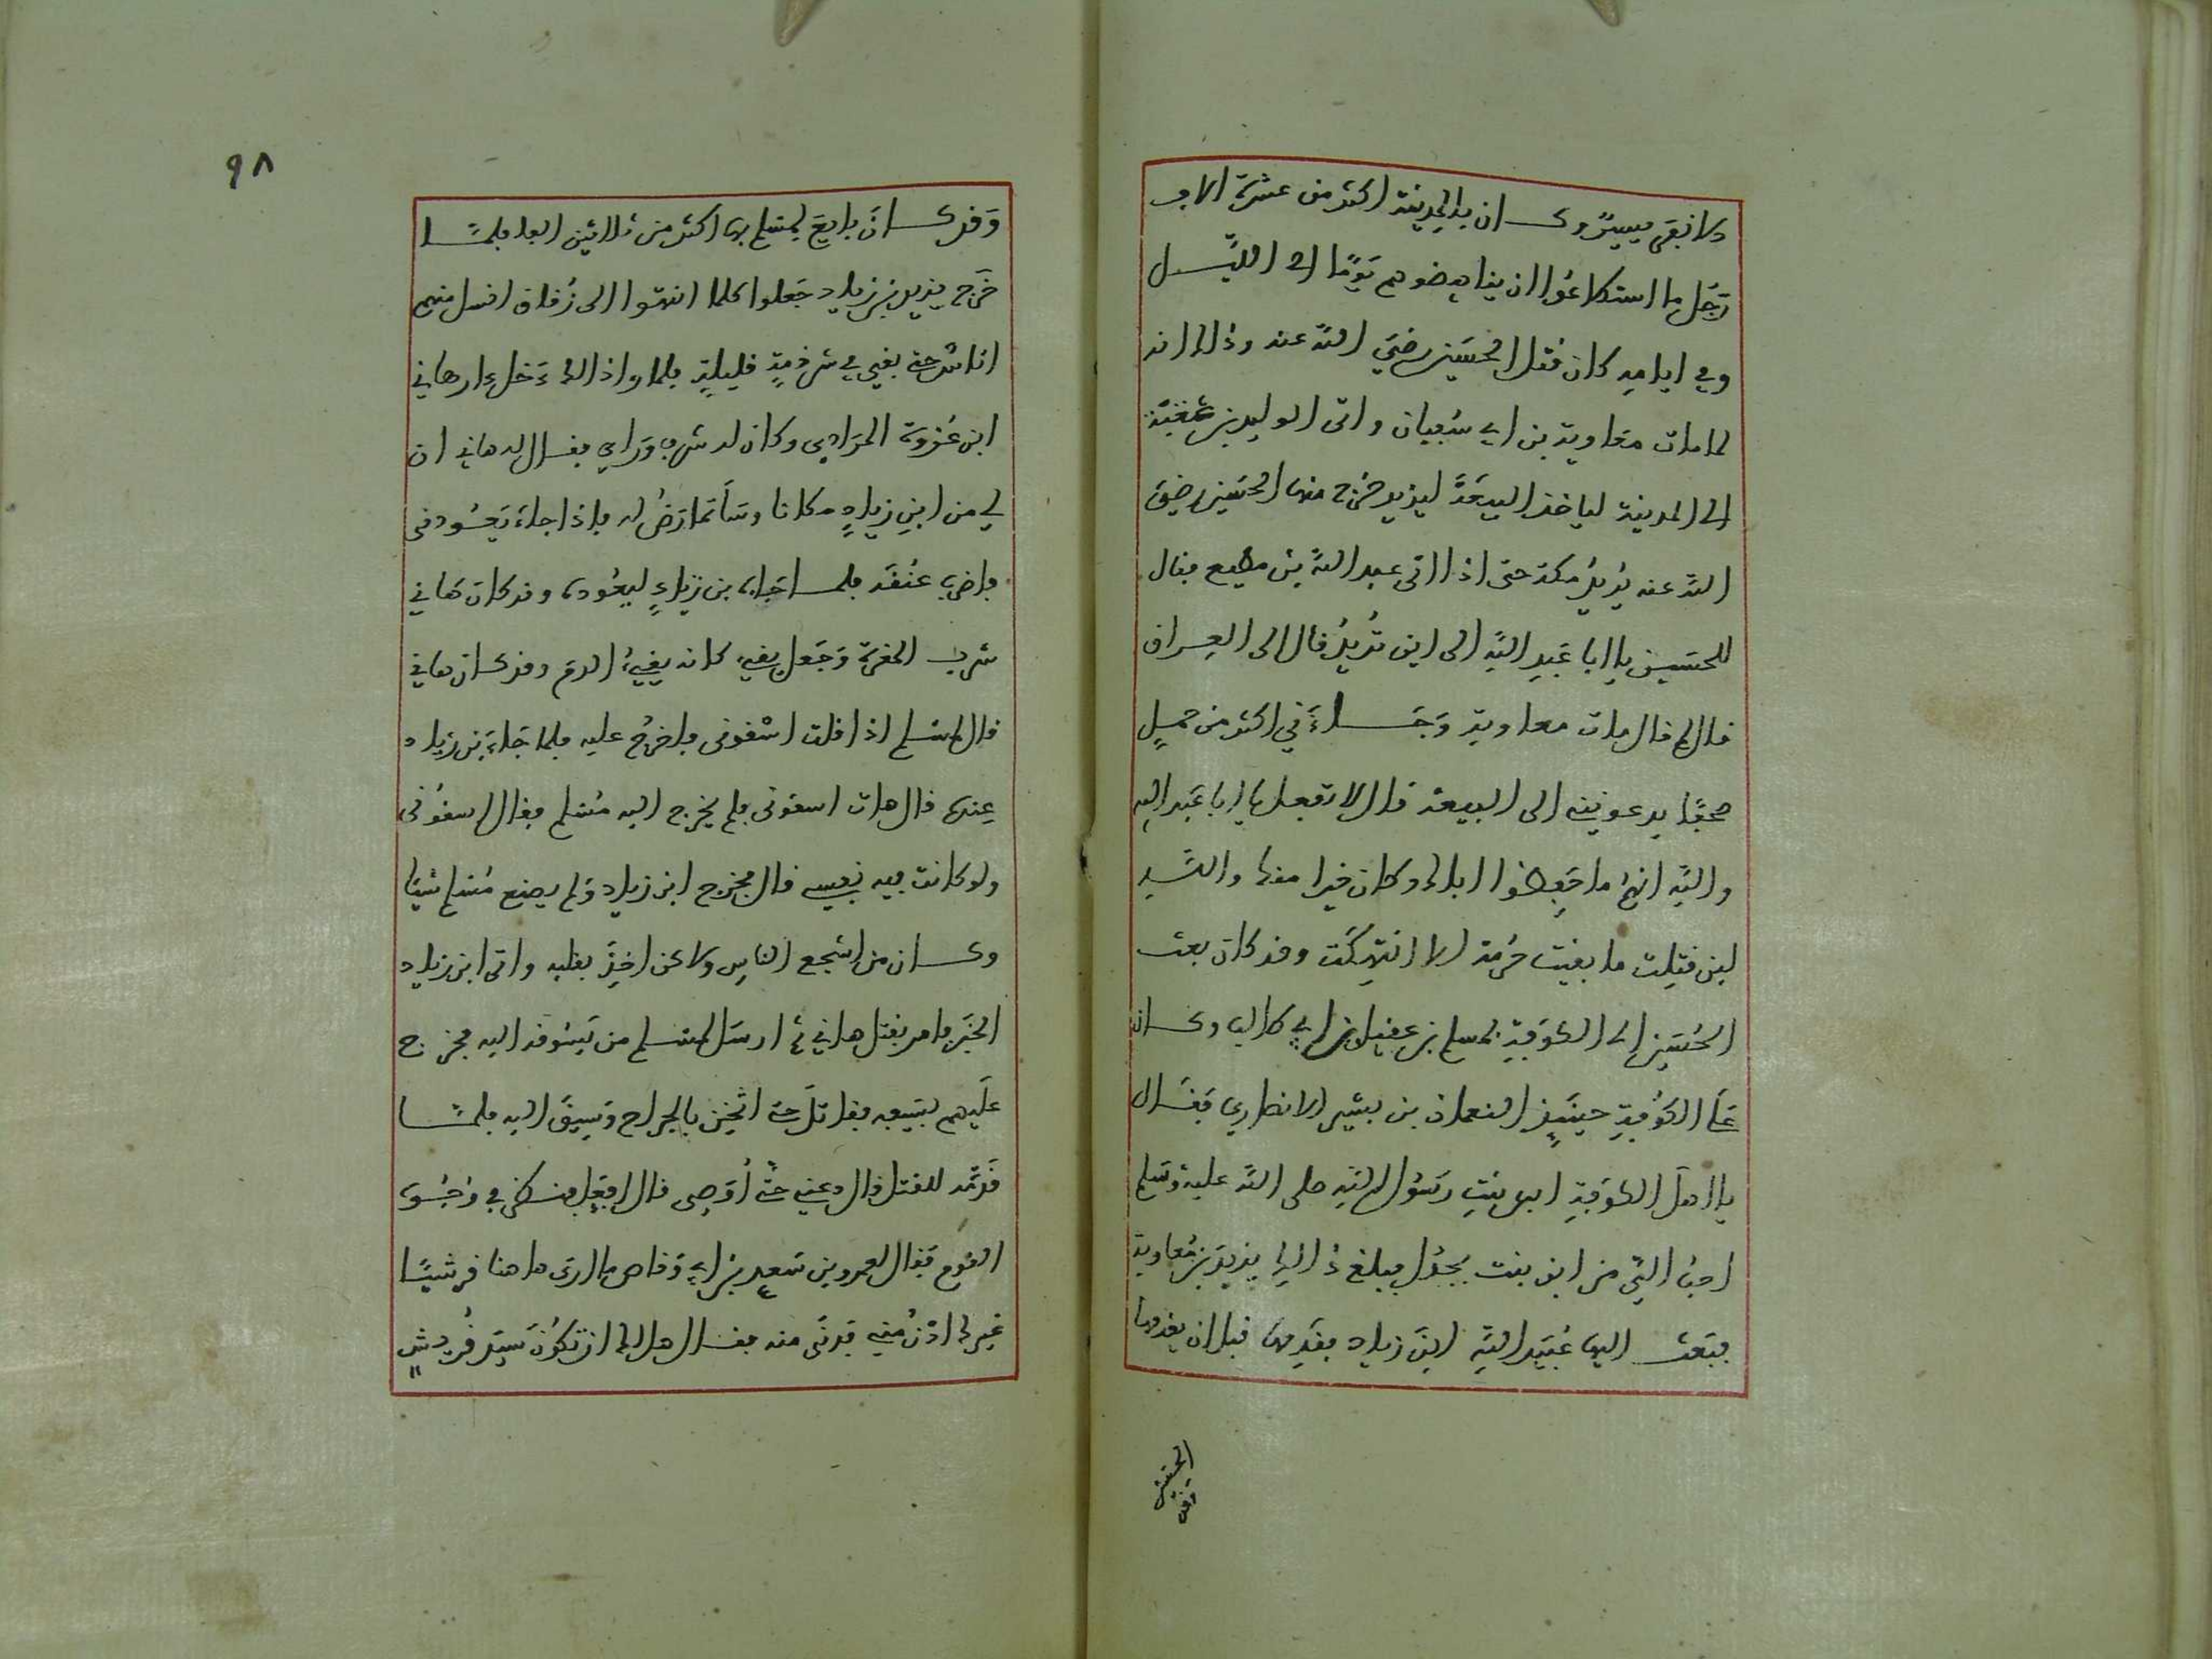 ولا نبقى ميسرٌ وكان بالمدينة اكثر من عشرة الاف
رجُل ما استطاعُوا ان يناهضوهم يَومًا الى الليْل
وفي ايامه كان قتل الحسَين رضيَ اللّه عنه وذلك انه
لما مات معاوية بن ابي سُفيان واتى الوليد بن عُقبَة
الى المدينة لياخذ البيعَة ليزيد خرج منها الحسَين رضيَ
اللّه عنه يُريدُ مكة حتى اذا اتى عبد اللّه بن مطيع فقال
للحسَين يا ابا عَبدِ اللّه الى اين تُريدُ قال الى العِراق
قال لم قال مات معاوية وَجَاءَني اكثر من حملِ
صحفًا يدعونني الى البيعة قال لا تفعل يا ابا عَبد اللّه
واللّه انهُم ما حَفِظوا اباك وكان خيرا منك واللّه
لين قتِلت ما بقيت حُرمة الا انتهِكَت وقد كان بعث
الحُسَين الى الكوفة بمسلم بن عقيل بن ابي طالب وكان
عَلَى الكوُفةِ حينَئِذٍ النعمان بن بشير الانصاري فقَال
يا اهلَ الكوفةِ ابن بنتِ رَسُول اللّه صلى اللّه عليه وسَلم
احبُ اليَّ من ابن بنت بجدُل فبلغ ذُلك يزيدَ بن مُعاوية
فبَعث اليها عُبَيد اللّهِ ابن زياد فقَدِمهَا قبل ان يقدمها
الحسَين رَضي
٩٨
وَقد كانَ بايعَ لمسْلم بها اكثر من ثلاثين الفا فلمّا
خَرج يزيد بن زياد جَعلوا كلما انتهَوا الى زُقاق انسل منهم
اناسٌ حتى بقي في شرذمةٍ قليلةٍ فلما راى ذلك دَخل دار هاني
ابن عُروة المرَادِي وكان له شرف ورَاي فقال له هاني ان
لي من ابنِ زيادٍ مكانا وسَأتمارَضُ له فإذا جاءَ يَعُودنى
فاضرِب عنُقه فلما جَاءه بن زيادٍ ليعُوده وقد كان هَاني
شرب المغرَة وَجَعل يقيء كانه يقيءُ الدم وقد كان هاني
قال لمسْلم اذا قلت اسْقونى فاخرُج عليه فلما جَاءَ بن زياد
عِنده قال هات اسقونى فلم يخرج اليه مُسْلم فقال اسقُونى
ولو كانت فيه نفِسي قال فخرج ابن زياد وَلم يصنع مُسْلم شيئا
وكان من اشجع الناسِ ولاكن اخِذَ بقلبه واتى ابن زياد
الخبَر فامر بقتل هاني ثم ارسَل لمسْلم من يَسُوقه اليه فخرج
عَليهم بسَيفه فقاتلَ حتى اثخِن بالجراح وَسِيقَ اليه فلمّا
قَدَّمه للقتل قال دعني حتى أُوَصى قال افعَل فنظر في وُجُوه
القوم فقال لعمرو بن سَعيد بن ابي وَقاص ما ارى ها هنا قرشيًا
غيرك ادْنُ مني فدنَى منه فقال هل لك ان تكوُنَ سيّد قُريشٍ